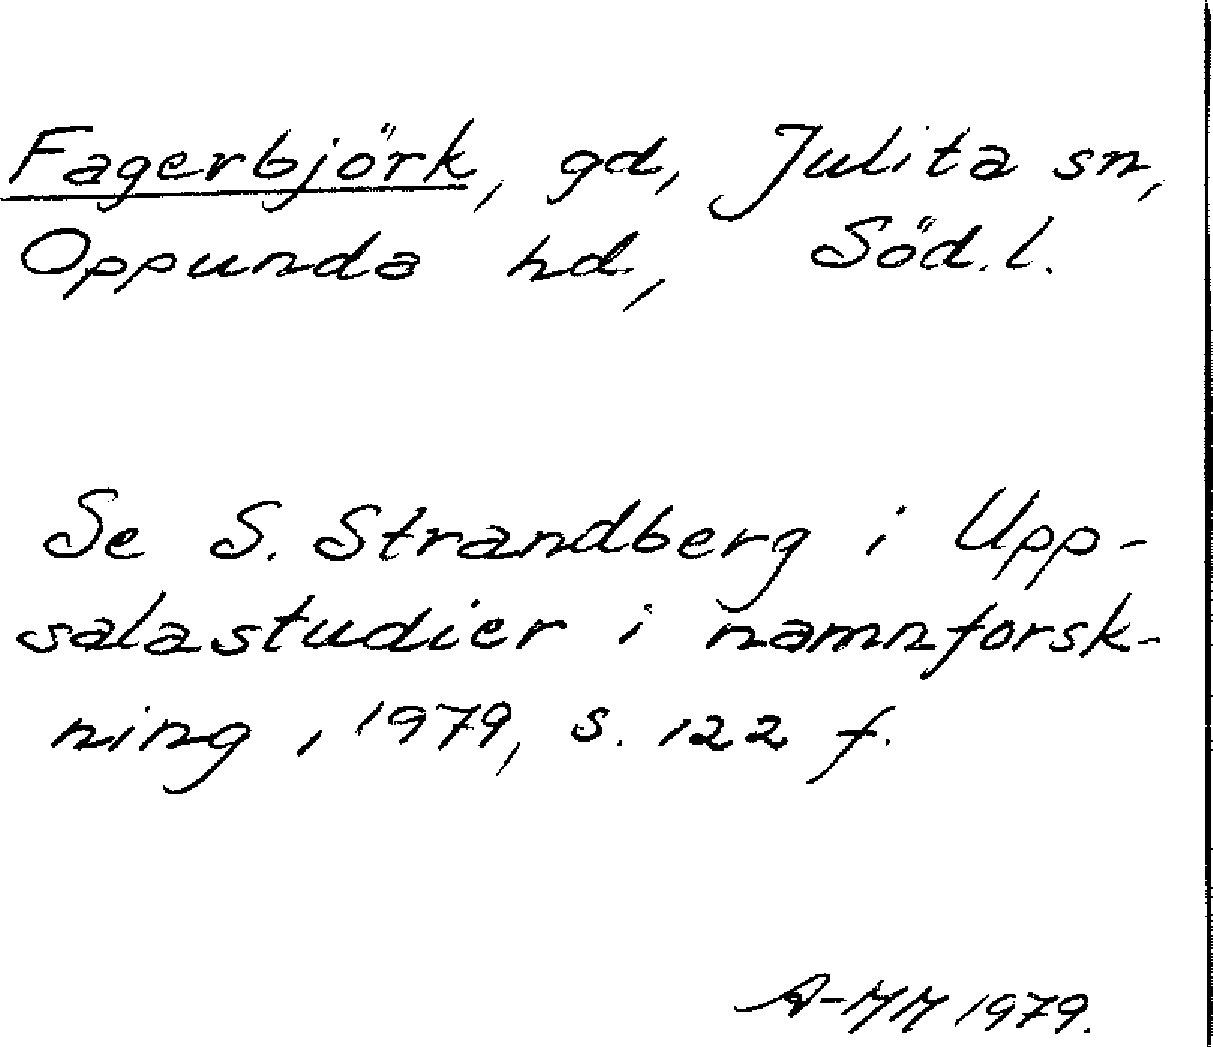 Fagerbjörk, gd, Julita sn,
Oppunda hd, Söd.l.
Se S. Strandberg i Upp-
salastudier i namnforsk-
ning, 1979, s. 122 f.
A-MM 1979.